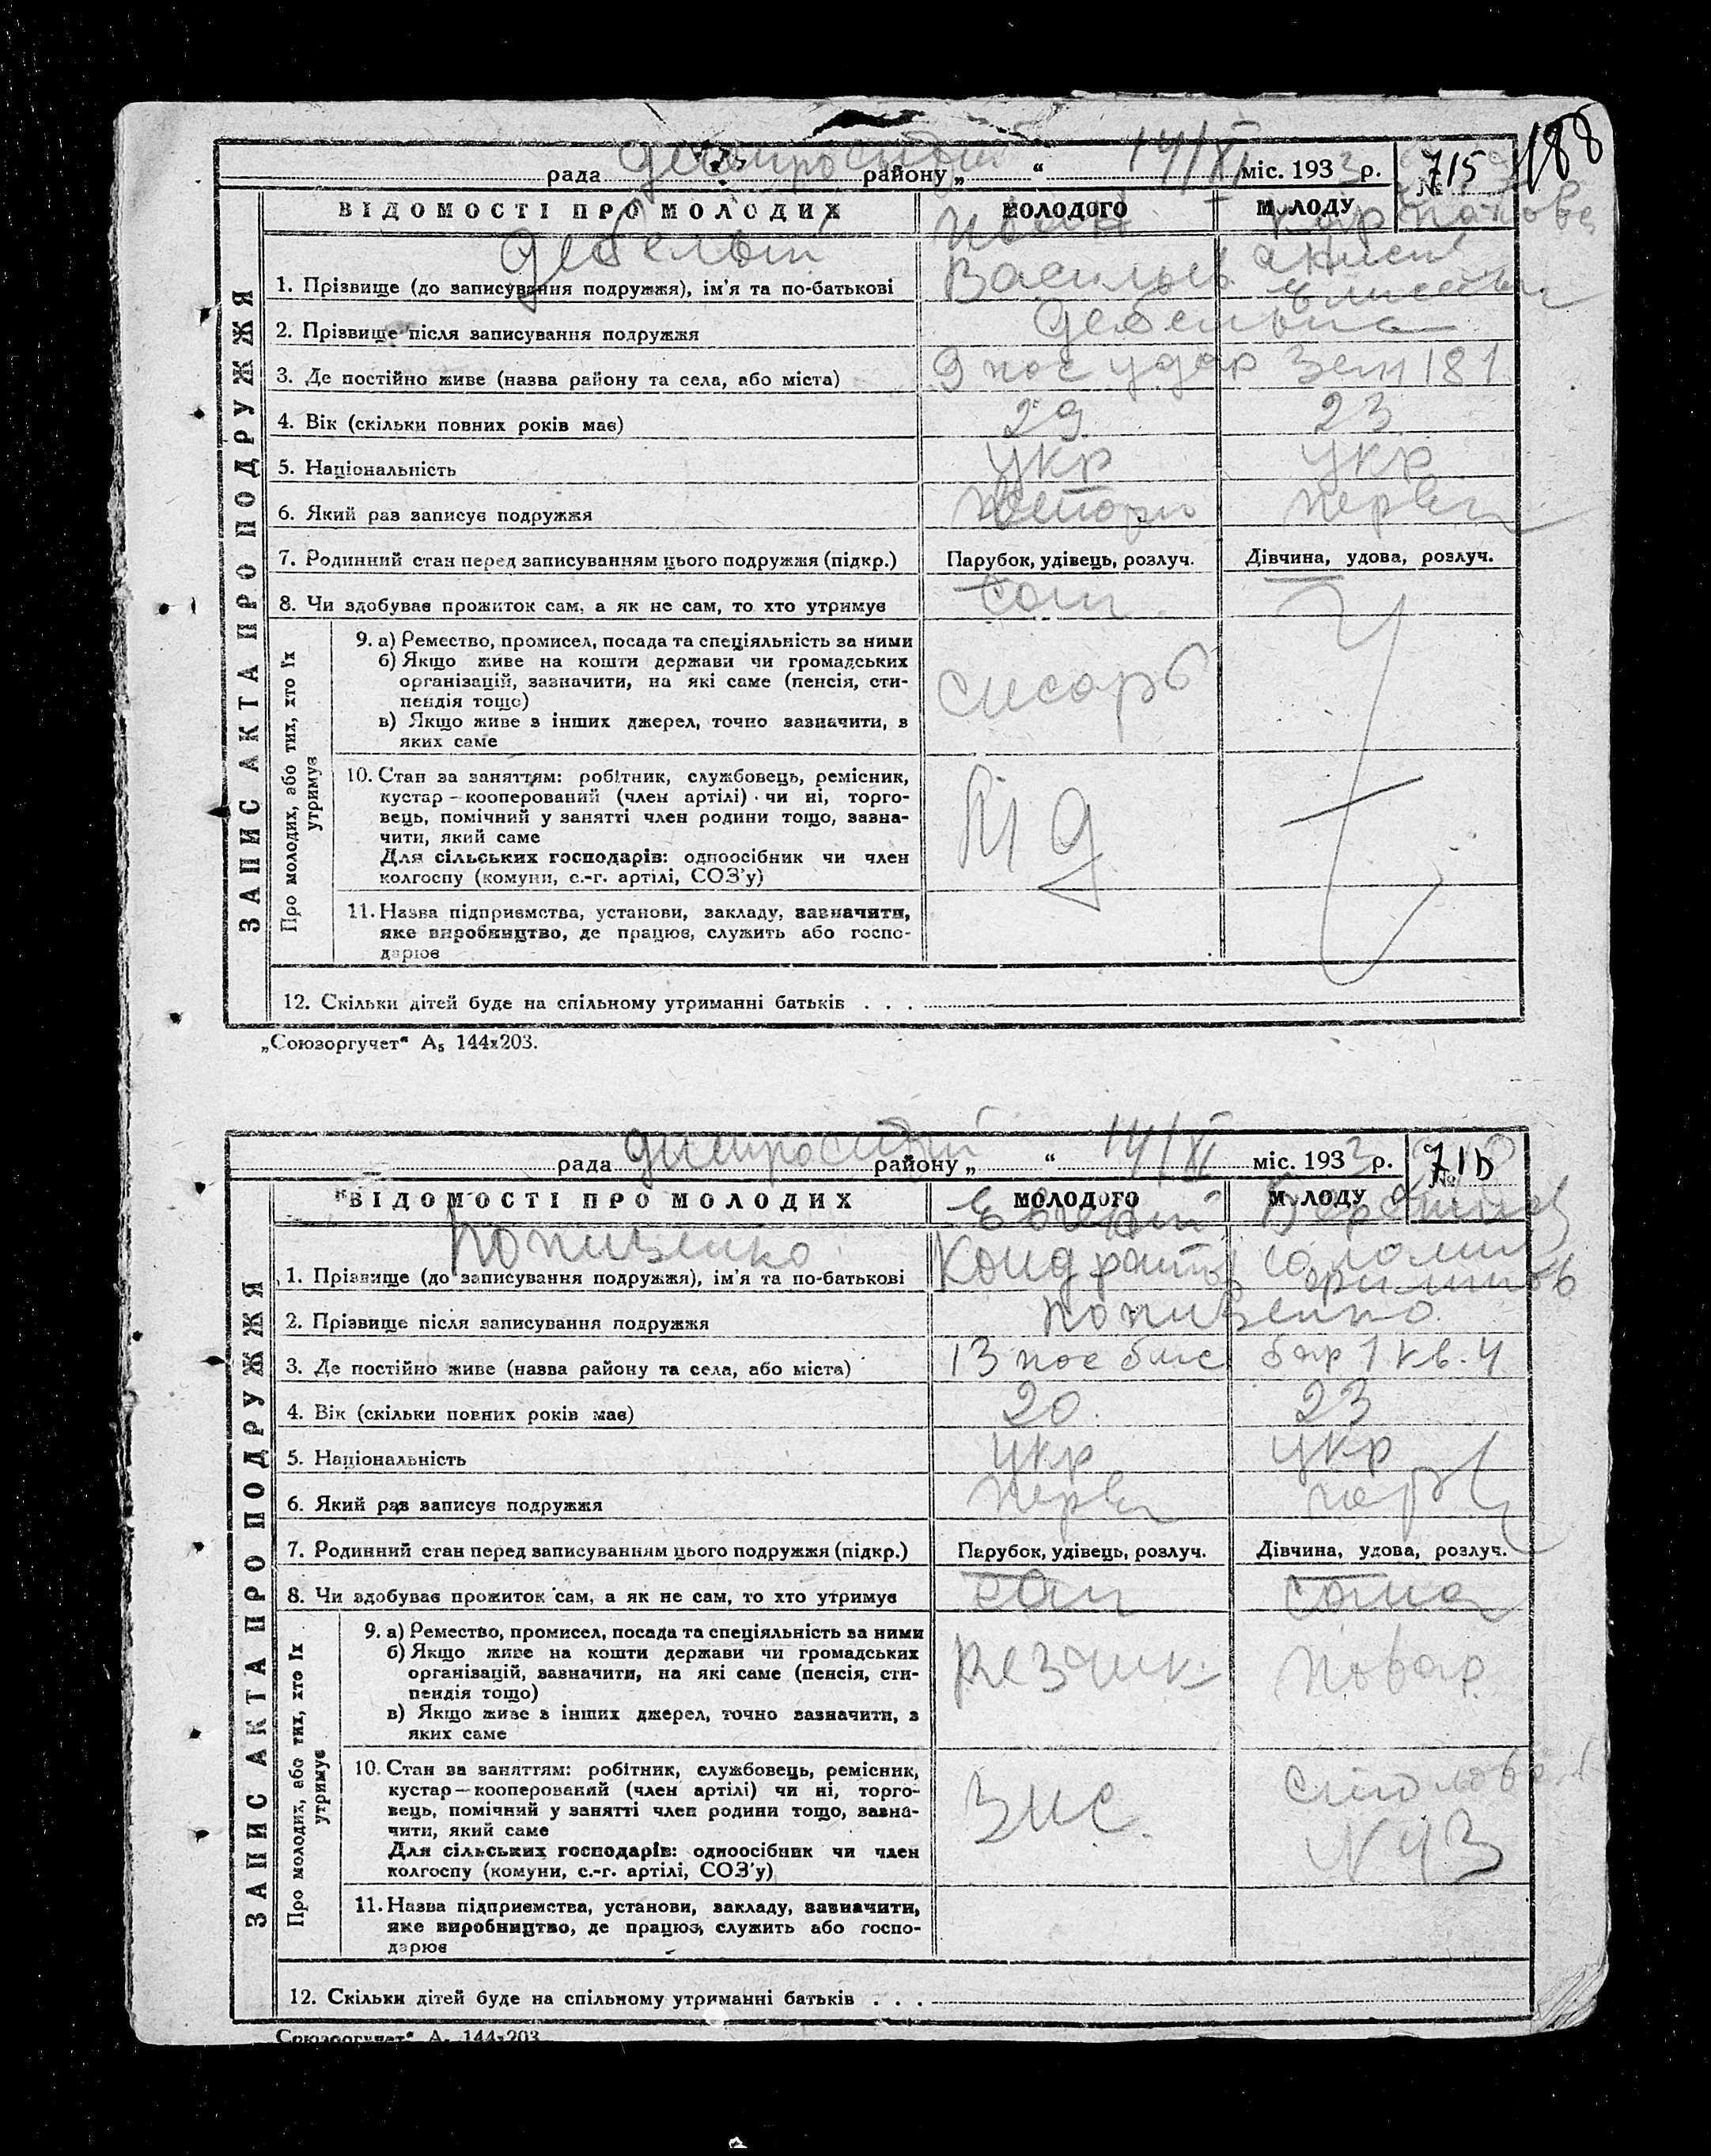 188
Дніпросидой
14/XI
рада району „ “ міс. 1933 р. № 715
ВІДОМОСТІ ПРО МОЛОДИХ МОЛОДОГО МОЛОДУ
ЗАПИС АКТА ПРО ПОДРУЖЖЯ
Дебелый
1. Прізвище (до записування подружжя), ім'я та по-батькові Васильев
2. Прізвище після записування подружжя
3. Де постійно живе (назва району та села, або міста) 9 пос удар Зем 181
4. Вік (скільки повних років має) 29 23
5. Національність укр укр
6. Який раз записує подружжя перви
7. Родинний стан перед записуванням цього подружжя (підкр.) Парубок, удівець, розлуч. Дівчина, удова, розлуч.
8. Чи здобуває прожиток сам, а як не сам, то хто утримує сам
Про молодих, або тих, хто їх утримує
9. а) Ремество, промисел, посада та спеціяльність за ними
б) Якщо живе на кошти держави чи громадських
організацій, зазначити, на які саме (пенсія, сти-
пендія тощо)
слесарь
в) Якщо живе з інших джерел, точно зазначити, з
яких саме
10. Стан за заняттям: робітник, службовець, ремісник,
кустар—кооперований (член артілі) чи ні, торго-
вець, помічний у занятті член родини тощо, зазна-
чити, який саме
Для сільських господарів: одноосібник чи член
колгоспу (комуни, с.-г. артілі, СОЗ'у)
11. Назва підприємства, установи, закладу, зазначити,
яке виробництво, де працює, служить або госпо-
дарює
12. Скільки дітей буде на спільному утриманні батьків . . .
„Союзоргучет“ А₅ 144х203.
14/XI
рада району „ “ міс. 1933 р. №
ВІДОМОСТІ ПРО МОЛОДИХ МОЛОДОГО МОЛОДУ
ЗАПИС АКТА ПРО ПОДРУЖЖЯ
1. Прізвище (до записування подружжя), ім'я та по-батькові
2. Прізвище після записування подружжя
3. Де постійно живе (назва району та села, або міста) 13 пос бар 1 кв. 4
4. Вік (скільки повних років має) 20 23
5. Національність укр укр
6. Який раз записує подружжя перви перв
7. Родинний стан перед записуванням цього подружжя (підкр.) Парубок, удівець, розлуч. Дівчина, удова, розлуч.
8. Чи здобуває прожиток сам, а як не сам, то хто утримує сам сама
Про молодих, або тих, хто їх утримує
9. а) Ремество, промисел, посада та спеціяльність за ними
б) Якщо живе на кошти держави чи громадських
організацій, зазначити, на які саме (пенсія, сти-
пендія тощо)
резчик повар
в) Якщо живе з інших джерел, точно зазначити, з
яких саме
10. Стан за заняттям: робітник, службовець, ремісник,
кустар—кооперований (член артілі) чи ні, торго-
вець, помічний у занятті член родини тощо, зазна-
чити, який саме
Для сільських господарів: одноосібник чи член
колгоспу (комуни, с.-г. артілі, СОЗ'у)
столовая
N 43
11. Назва підприємства, установи, закладу, зазначити,
яке виробництво, де працює, служить або госпо-
дарює
12. Скільки дітей буде на спільному утриманні батьків . . .
„Союзоргучет“ А₅ 144х203